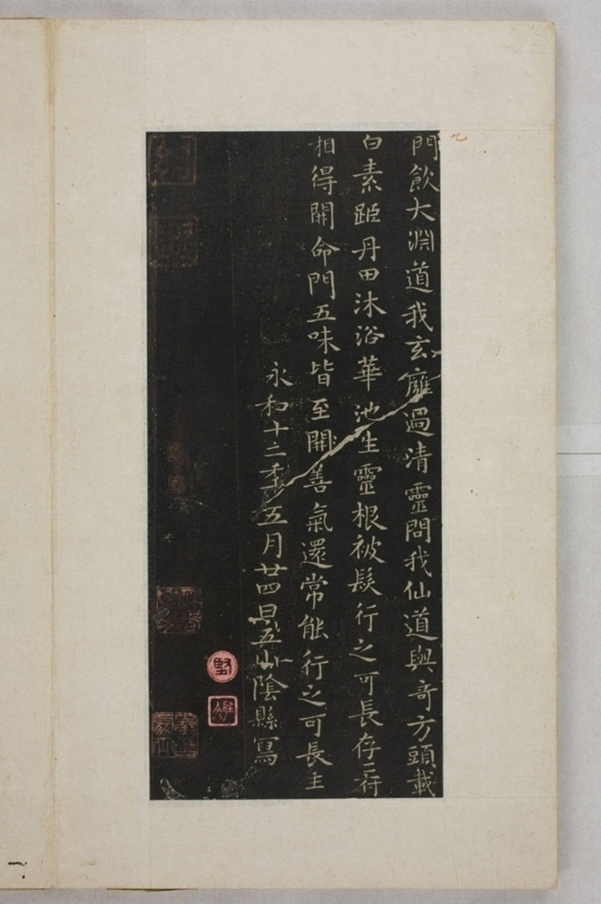 門飲大淵道我玄廱過清靈問我仙道與奇方頭載
白素距丹田沐浴華池生靈根被髮行之可長存二府
相得開命門五味皆至開善氣還常能行之可長生
永和十二年五月廿四日五山陰縣寫
堅